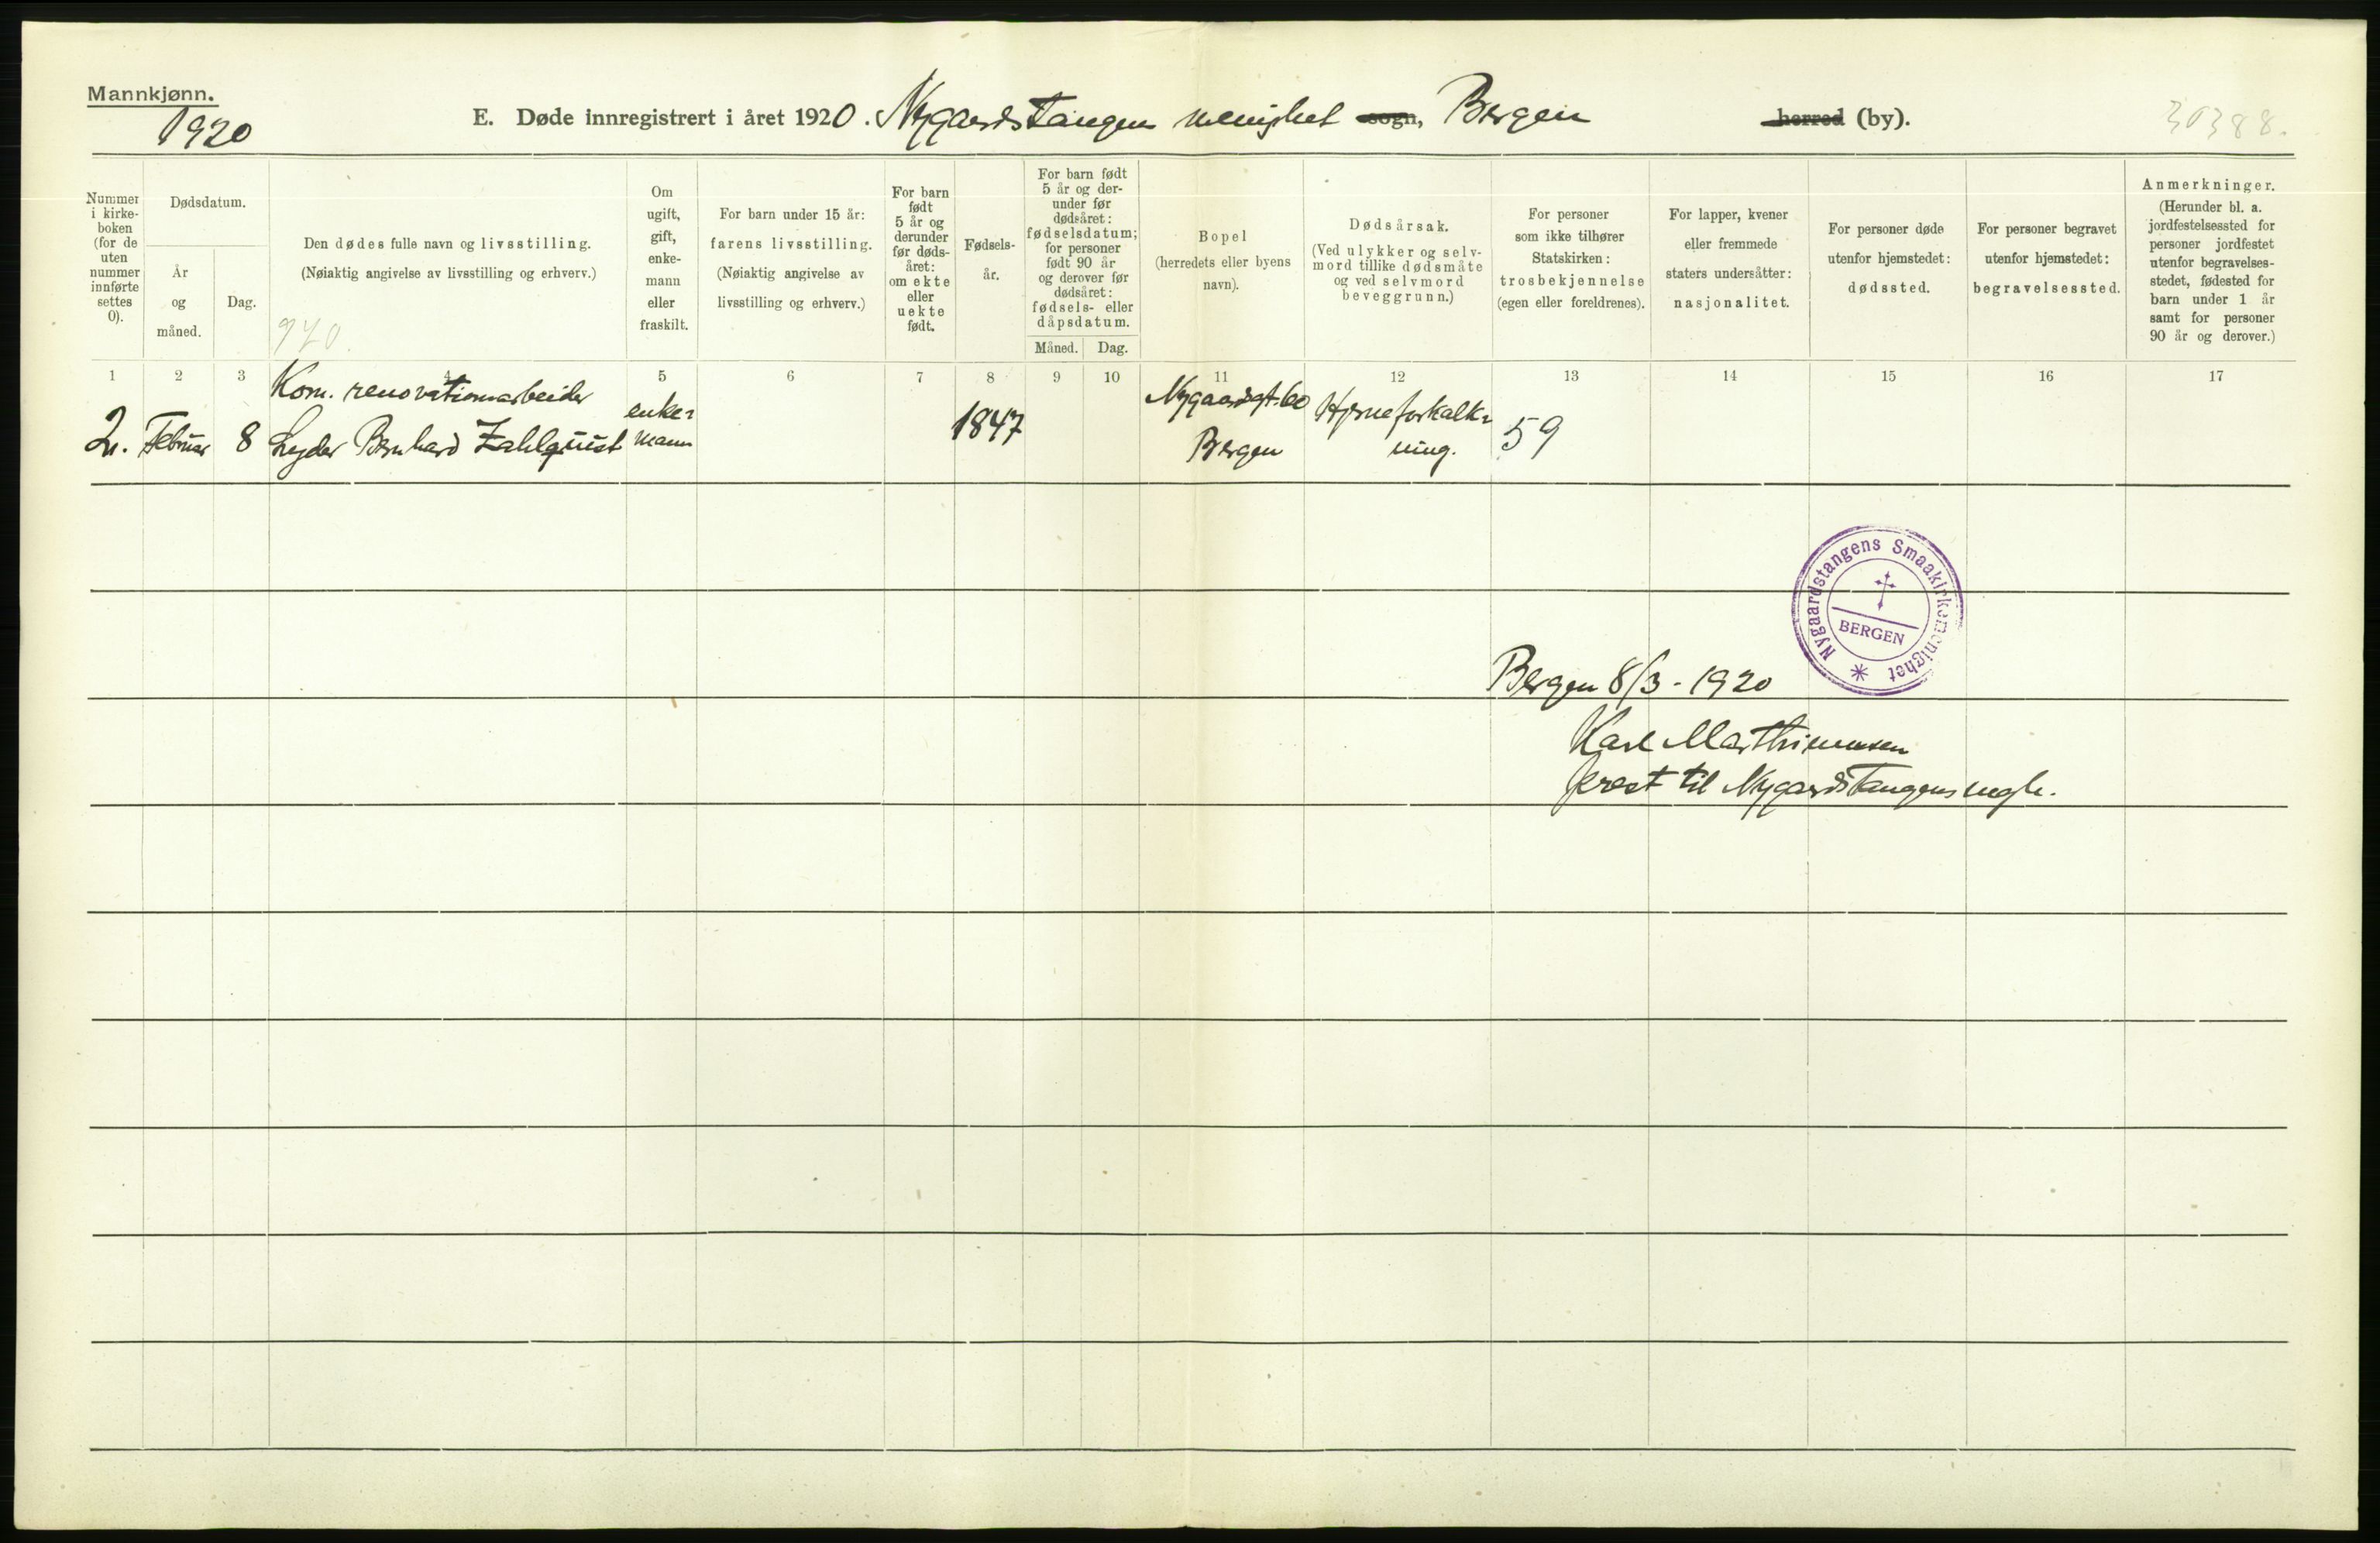 Mannkjønn.
1920
E. Døde innregistrert i året 1920. Nygaardstangen menighet sogn, Bergen herred (by).
30388.
Nummer i kirke-boken (for de uten nummer innførte settes 0).
Dødsdatum.
År og måned.
Dag.
Den dødes fulle navn og livsstilling.
(Nøiaktig angivelse av livsstilling og erhverv.)
920.
Om ugift, gift, enke-mann eller fraskilt.
For barn under 15 år:
farens livsstilling.
(Nøiaktig angivelse av
livsstilling og erhverv.)
For barn født 5 år og derunder før døds-året: om ekte eller uekte født.
Fødsels-år.
For barn født 5 år og der-under før dødsåret: fødselsdatum; for personer født 90 år og derover før dødsåret: fødsels- eller dåpsdatum.
Måned. Dag.
Bopel
(herredets eller byens
navn).
Dødsårsak.
(Ved ulykker og selv-
mord tillike dødsmåte
og ved selvmord
beveggrunn.)
For personer
som ikke tilhører
Statskirken:
trosbekjennelse
(egen eller foreldrenes).
For lapper, kvener
eller fremmede
staters undersåtter:
nasjonalitet.
For personer døde
utenfor hjemstedet:
dødssted.
For personer begravet
utenfor hjemstedet:
begravelsessted.
Anmerkninger.
(Herunder bl. a.
jordfestelsessted for
personer jordfestet
utenfor begravelses-
stedet, fødested for
barn under 1 år
samt for personer
90 år og derover.)
1 2 3 4 5 6 7 8 9 10 11 12 13 14 15 16 17
Kom. renovationsarbeider
2. Februar 8 Lyder Bernhard Zahlquist
enke-
mann
1847
Nygaardsgt. 60
Bergen
Hjerneforkalk-
ning.
59
Nygaardstangens Smaakirkemenighet
BERGEN
Bergen 8/3 - 1920
Karl Marthinussen
prest til Nygardstangens mgh.